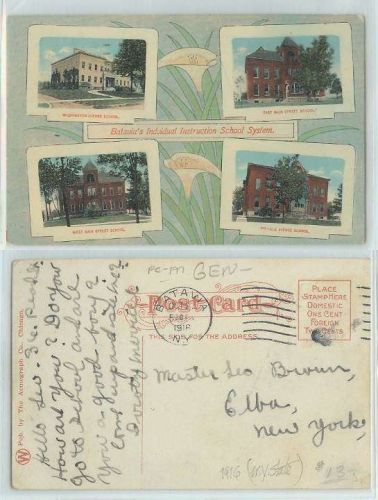 WASHINGTON AVENUE SCHOOL.
EAST MAIN STREET SCHOOL.
Batavia's Individual Instruction School System.
WEST MAIN STREET SCHOOL.
AVENUE SCHOOL.
PC-197
GEN-
Post Card
THIS SIDE FOR THE ADDRESS.
BATAVIA
1916
N.Y.
PLACE
STAMP HERE
DOMESTIC
ONE CENT
FOREIGN
TWO CENTS
Pub. by The Acmegraph Co. Chicago.
Hello Leo.
How are you? Do you
go to school and are
you a good boy?
Come up and see
Dorothy
Master Leo Brown,
Elba,
New York,
1916 (N.Y. State)
$13